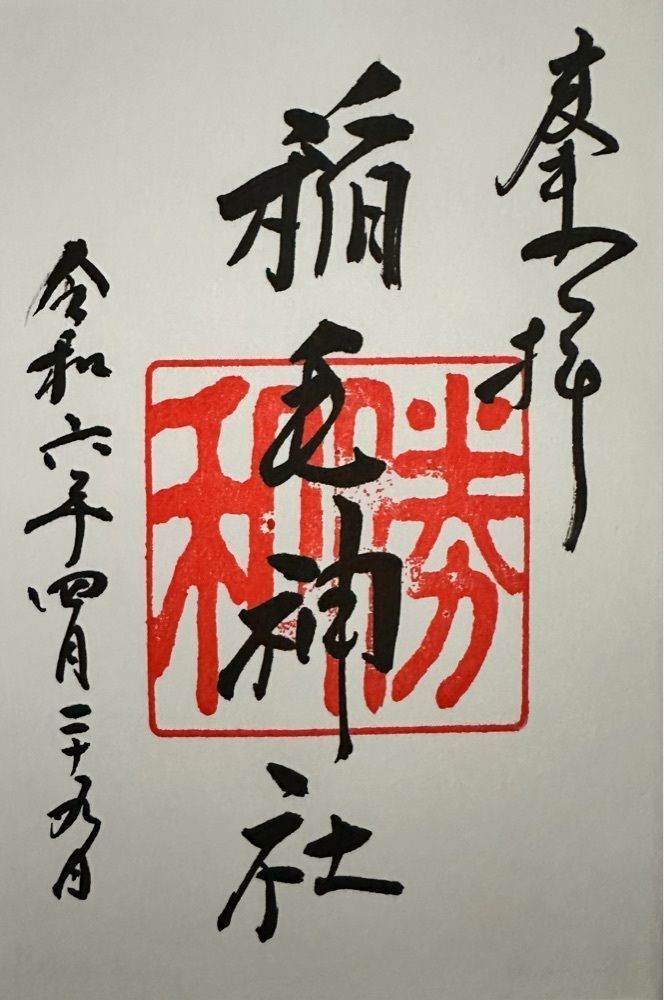 奉拝
稲毛神社
勝和
令和六年四月二十九日